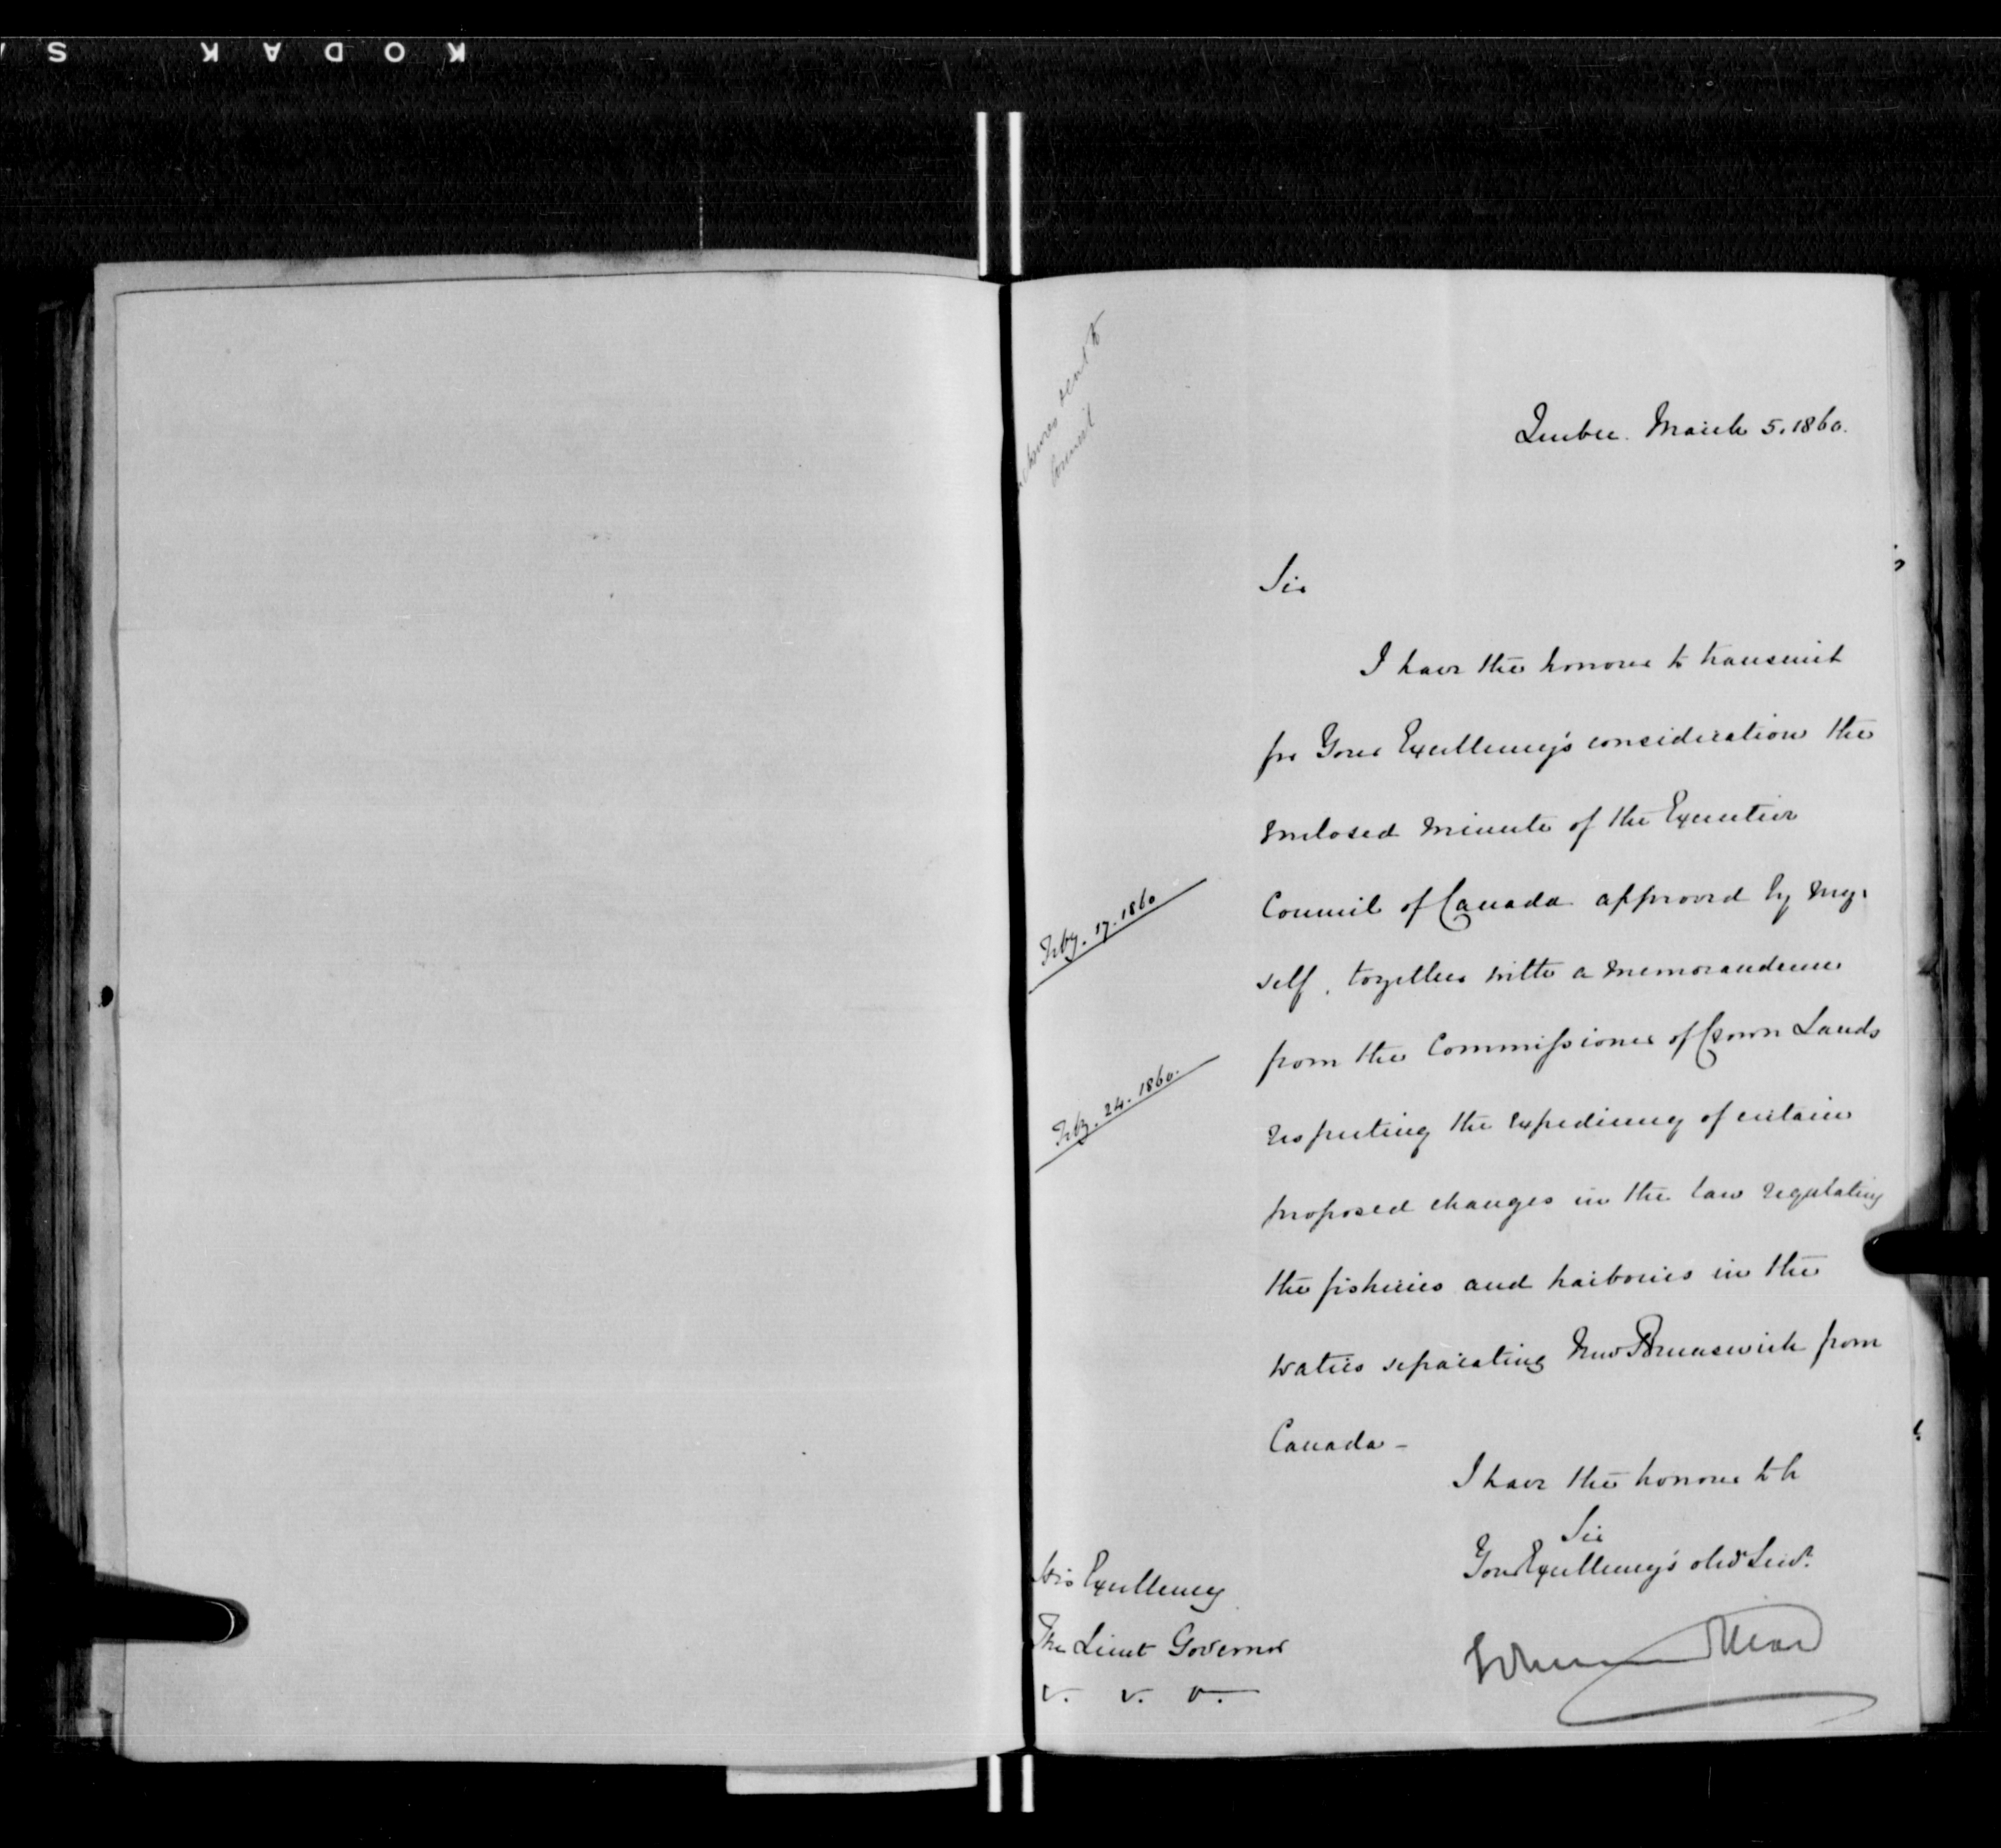 KODAK S
sent to
Council
Quebec. March 5. 1860.
Sir
I have the honour to transmit
for Your Excellency's consideration the
enclosed minute of the Executive
Feby. 17. 1860
Council of Canada approved by my-
self, together with a memorandum
from the Commissioner of Crown Lands
Feby. 24. 1860.
respecting the expediency of certain
proposed changes in the law regulating
the fisheries and harbours in the
waters separating New Brunswick from
Canada -
I have the honour to be
Sir
Your Excellency's obdt Servt.
Edmund Head
His Excellency
The Lieut Governor